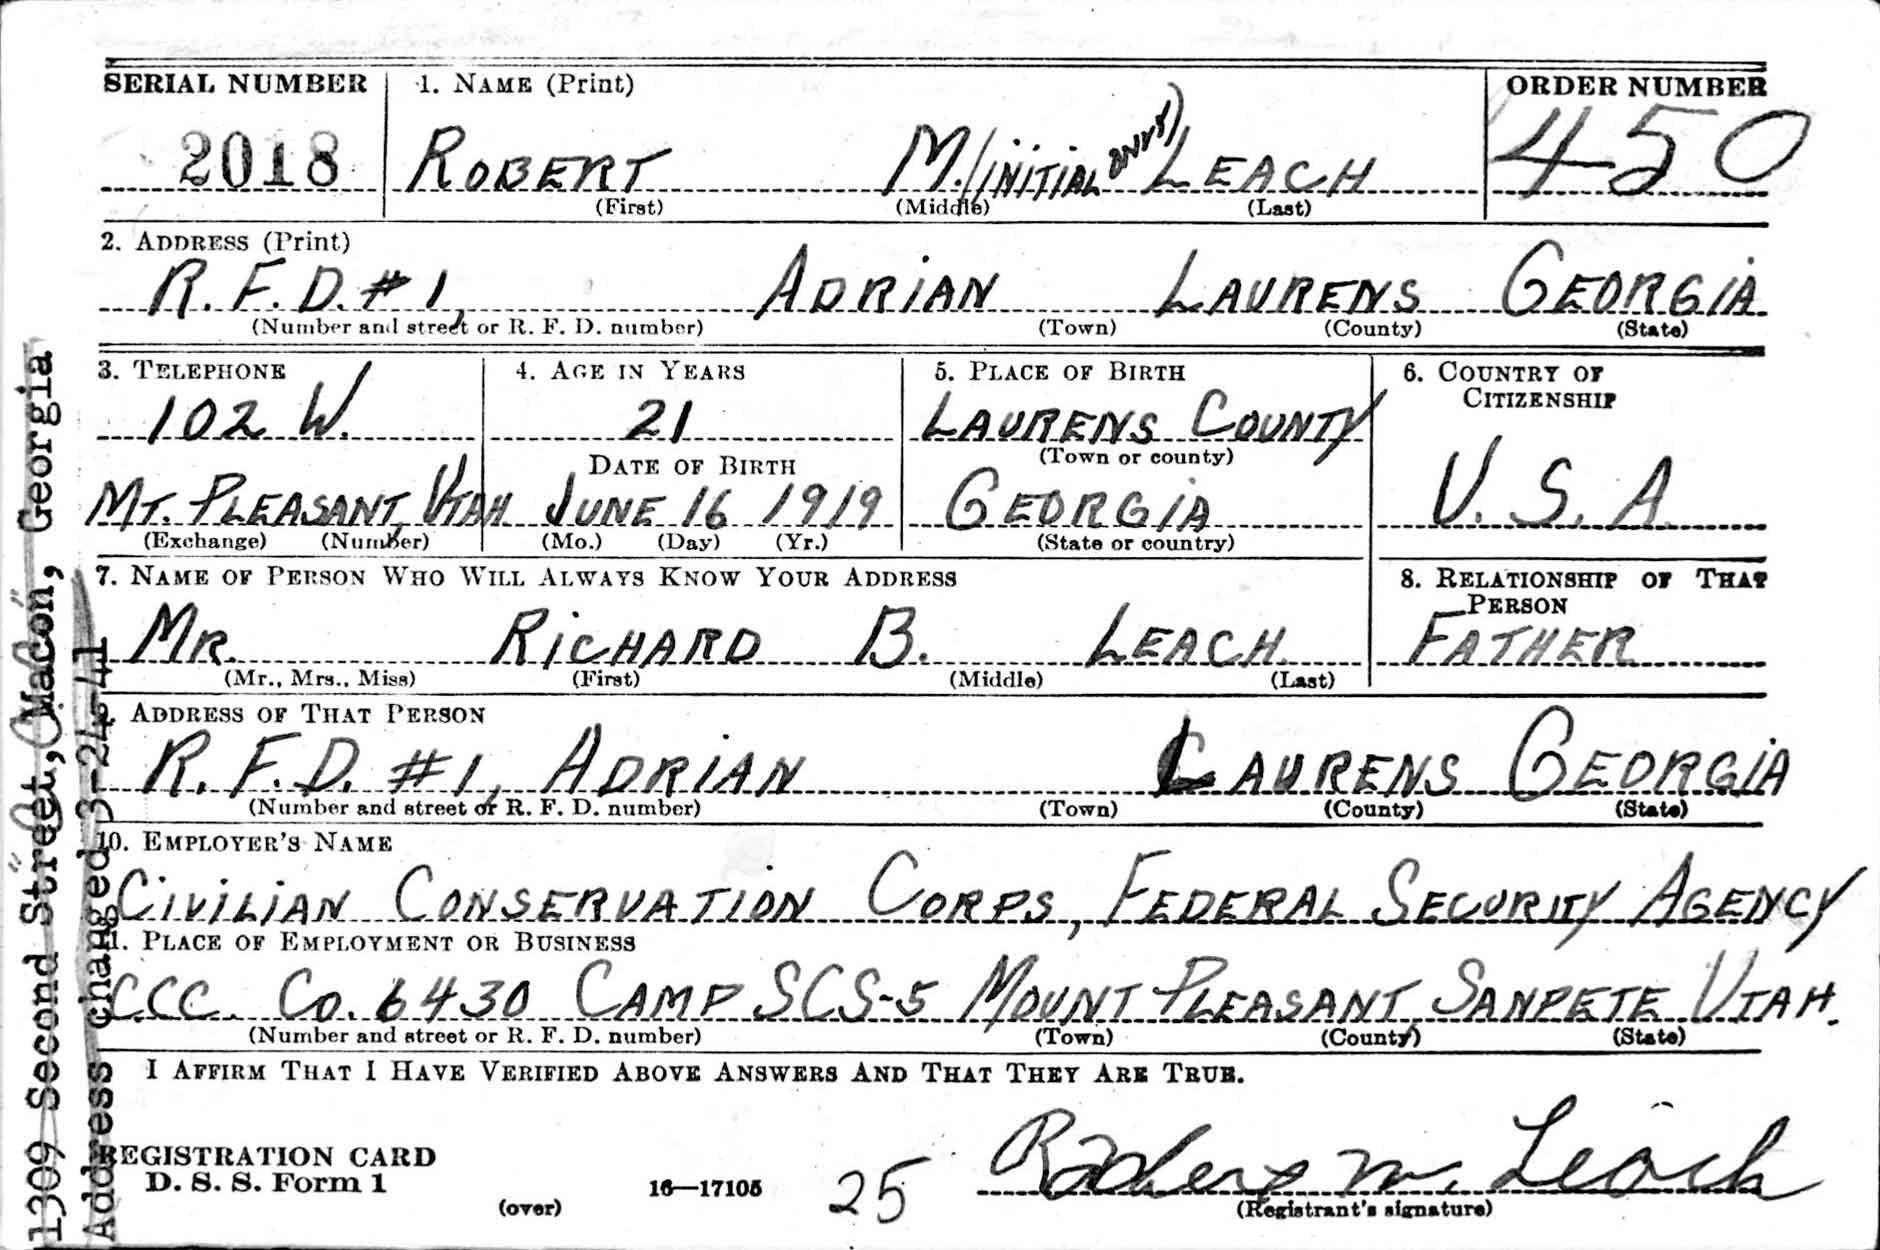 SERIAL NUMBER 1. NAME (Print) ORDER NUMBER
2018 ROBERT M. (INITIAL ONLY) LEACH 450
(First) (Middle) (Last)
2. ADDRESS (Print)
R. F. D. #1, ADRIAN LAURENS GEORGIA
(Number and street or R. F. D. number) (Town) (County) (State)
3. TELEPHONE 4. AGE IN YEARS 5. PLACE OF BIRTH 6. COUNTRY OF
CITIZENSHIP
102 W. 21 LAURENS COUNTY
DATE OF BIRTH (Town or county)
MT. PLEASANT, UTAH JUNE 16 1919 GEORGIA U. S. A.
(Exchange) (Number) (Mo.) (Day) (Yr.) (State or country)
7. NAME OF PERSON WHO WILL ALWAYS KNOW YOUR ADDRESS 8. RELATIONSHIP OF THAT
PERSON
MR. RICHARD B. LEACH FATHER
(Mr., Mrs., Miss) (First) (Middle) (Last)
9. ADDRESS OF THAT PERSON
R. F. D. #1, ADRIAN LAURENS GEORGIA
(Number and street or R. F. D. number) (Town) (County) (State)
10. EMPLOYER'S NAME
CIVILIAN CONSERVATION CORPS, FEDERAL SECURITY AGENCY
11. PLACE OF EMPLOYMENT OR BUSINESS
CCC. CO. 6430 CAMP SCS-5 MOUNT PLEASANT, SANPETE UTAH.
(Number and street or R. F. D. number) (Town) (County) (State)
I AFFIRM THAT I HAVE VERIFIED ABOVE ANSWERS AND THAT THEY ARE TRUE.
Robert M. Leach
REGISTRATION CARD
D. S. S. Form 1 16—17105 25
(over) (Registrant's signature)
1309 Second Street, Macon, Georgia
Address changed 3-24-41